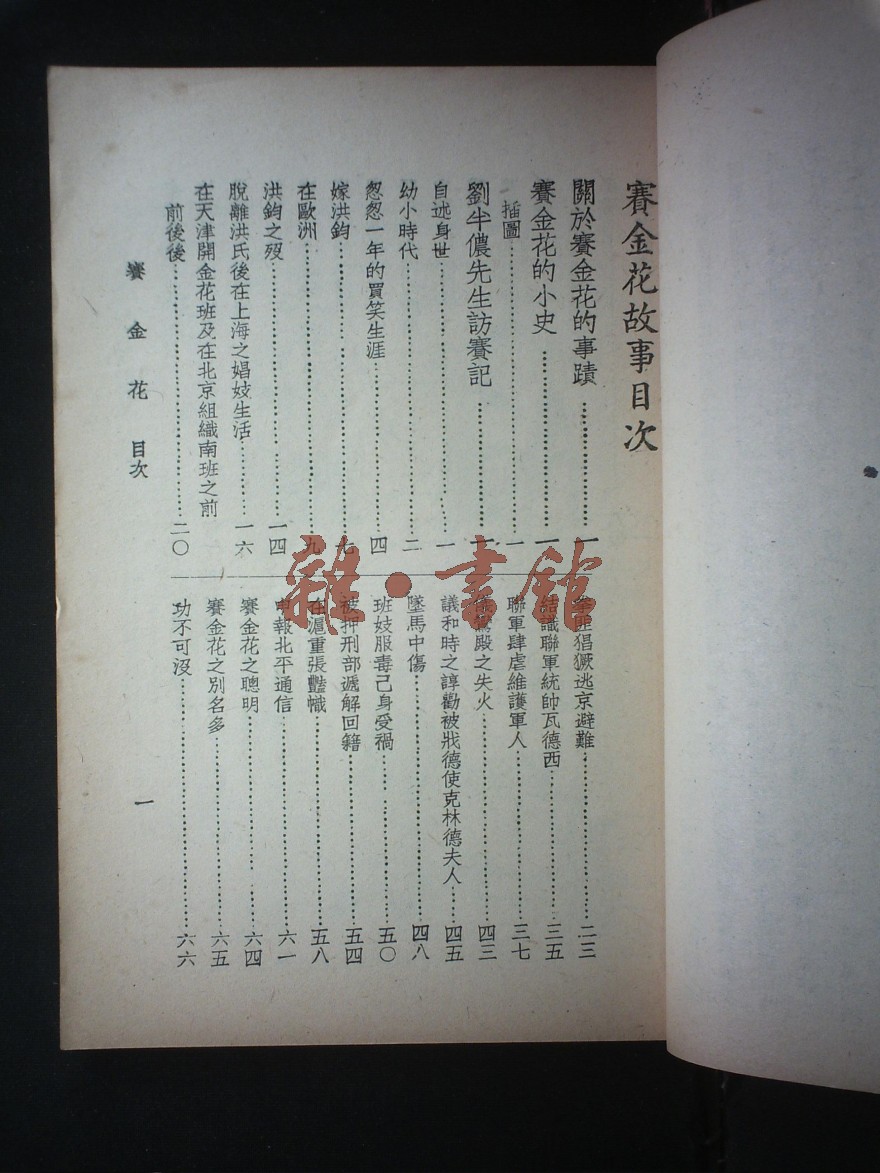 賽金花故事目次
關於賽金花的事蹟……一
賽金花的小史……一
插圖……一
劉半儂先生訪賽記……一
自述身世……一
幼小時代……二
怱怱一年的買笑生涯……四
嫁洪鈞……七
在歐洲……九
洪鈞之歿……一四
脫離洪氏後在上海之娼妓生活……一六
在天津開金花班及在北京組織南班之前
前後後……二〇
匪猖獗逃京避難……二三
結識聯軍統帥瓦德西……三五
聯軍肆虐維護軍人……三七
殿之失火……四三
議和時之諄勸被戕德使克林德夫人……四五
墜馬中傷……四八
班妓服毒己身受禍……五〇
被押刑部遞解回籍……五四
在滬重張豔幟……五八
申報北平通信……六一
賽金花之聰明……六四
賽金花之別名多……六五
功不可沒……六六
賽金花 目次
一
雜·書館